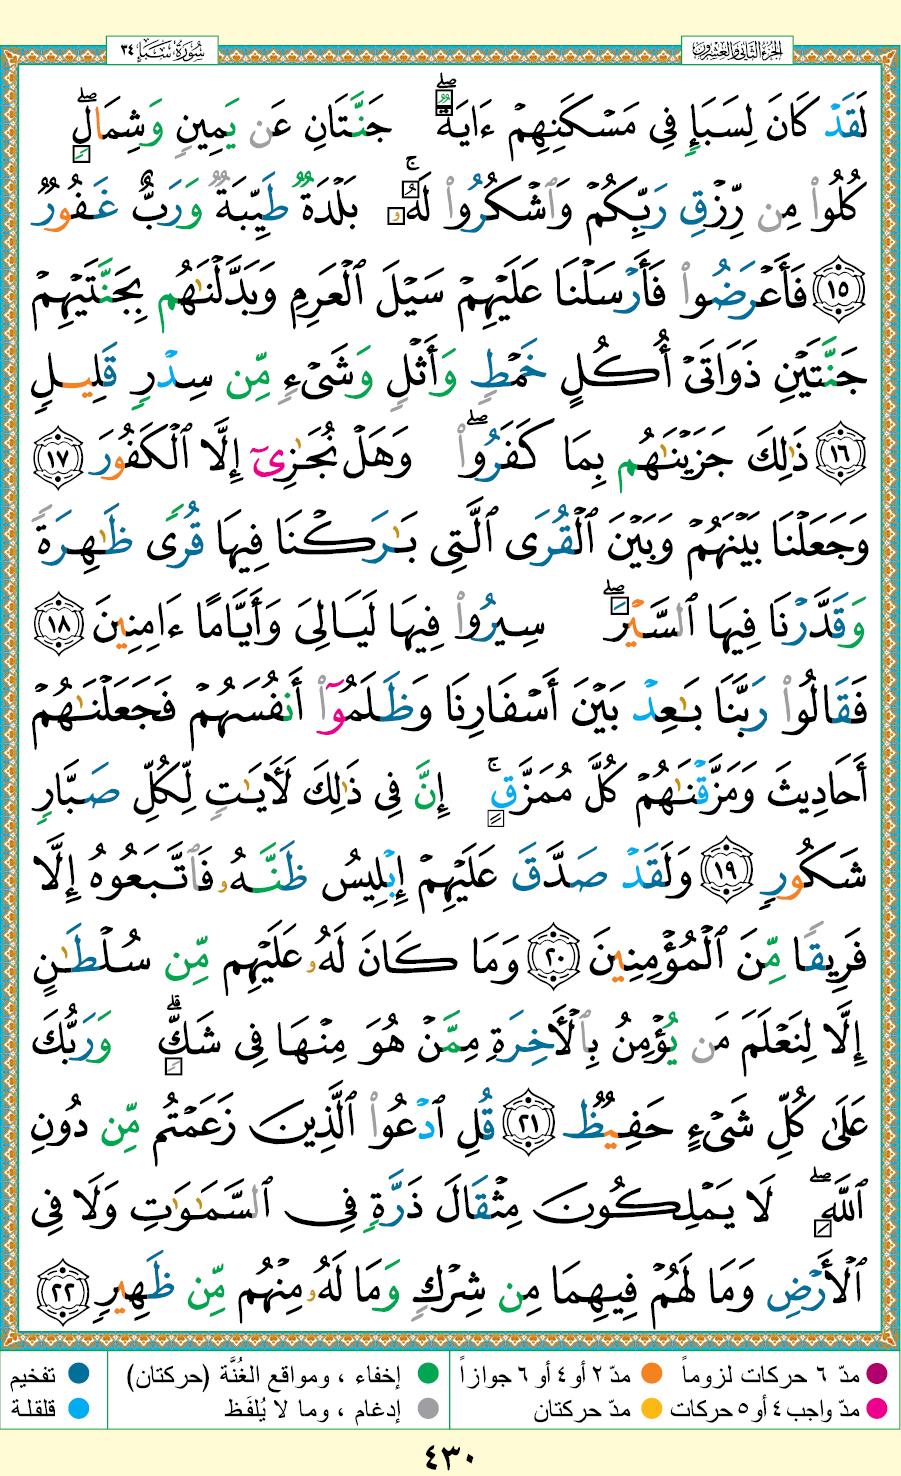 الجزء الثاني والعشرون
سُورَةُ سَبَإٍ ٣٤
لَقَدۡ كَانَ لِسَبَإٖ فِي مَسۡكَنِهِمۡ ءَايَةٞۖ جَنَّتَانِ عَن يَمِينٖ وَشِمَالٖۖ
كُلُواْ مِن رِّزۡقِ رَبِّكُمۡ وَٱشۡكُرُواْ لَهُۥۚ بَلۡدَةٞ طَيِّبَةٞ وَرَبٌّ غَفُورٞ
١٥ فَأَعۡرَضُواْ فَأَرۡسَلۡنَا عَلَيۡهِمۡ سَيۡلَ ٱلۡعَرِمِ وَبَدَّلۡنَٰهُم بِجَنَّتَيۡهِمۡ
جَنَّتَيۡنِ ذَوَاتَيۡ أُكُلٍ خَمۡطٖ وَأَثۡلٖ وَشَيۡءٖ مِّن سِدۡرٖ قَلِيلٖ
١٦ ذَٰلِكَ جَزَيۡنَٰهُم بِمَا كَفَرُواْۖ وَهَلۡ نُجَٰزِيٓ إِلَّا ٱلۡكَفُورَ ١٧
وَجَعَلۡنَا بَيۡنَهُمۡ وَبَيۡنَ ٱلۡقُرَى ٱلَّتِي بَٰرَكۡنَا فِيهَا قُرٗى ظَٰهِرَةٗ
وَقَدَّرۡنَا فِيهَا ٱلسَّيۡرَۖ سِيرُواْ فِيهَا لَيَالِيَ وَأَيَّامًا ءَامِنِينَ ١٨
فَقَالُواْ رَبَّنَا بَٰعِدۡ بَيۡنَ أَسۡفَارِنَا وَظَلَمُوٓاْ أَنفُسَهُمۡ فَجَعَلۡنَٰهُمۡ
أَحَادِيثَ وَمَزَّقۡنَٰهُمۡ كُلَّ مُمَزَّقٍۚ إِنَّ فِي ذَٰلِكَ لَأٓيَٰتٖ لِّكُلِّ صَبَّارٖ
شَكُورٖ ١٩ وَلَقَدۡ صَدَّقَ عَلَيۡهِمۡ إِبۡلِيسُ ظَنَّهُۥ فَٱتَّبَعُوهُ إِلَّا
فَرِيقٗا مِّنَ ٱلۡمُؤۡمِنِينَ ٢٠ وَمَا كَانَ لَهُۥ عَلَيۡهِم مِّن سُلۡطَٰنٍ
إِلَّا لِنَعۡلَمَ مَن يُؤۡمِنُ بِٱلۡأٓخِرَةِ مِمَّنۡ هُوَ مِنۡهَا فِي شَكّٖۗ وَرَبُّكَ
عَلَىٰ كُلِّ شَيۡءٍ حَفِيظٞ ٢١ قُلِ ٱدۡعُواْ ٱلَّذِينَ زَعَمۡتُم مِّن دُونِ
ٱللَّهِۖ لَا يَمۡلِكُونَ مِثۡقَالَ ذَرَّةٖ فِي ٱلسَّمَٰوَٰتِ وَلَا فِي
ٱلۡأَرۡضِ وَمَا لَهُمۡ فِيهِمَا مِن شِرۡكٖ وَمَا لَهُۥ مِنۡهُم مِّن ظَهِيرٖ ٢٢
مدّ ٦ حركات لزوماً مدّ ٢ أو ٤ أو ٦ جوازاً إخفاء ، ومواقع الغُنَّة (حركتان) تفخيم
مدّ واجب ٤ أو ٥ حركات مدّ حركتان إدغام ، وما لا يُلفَظ قلقلة
٤٣٠